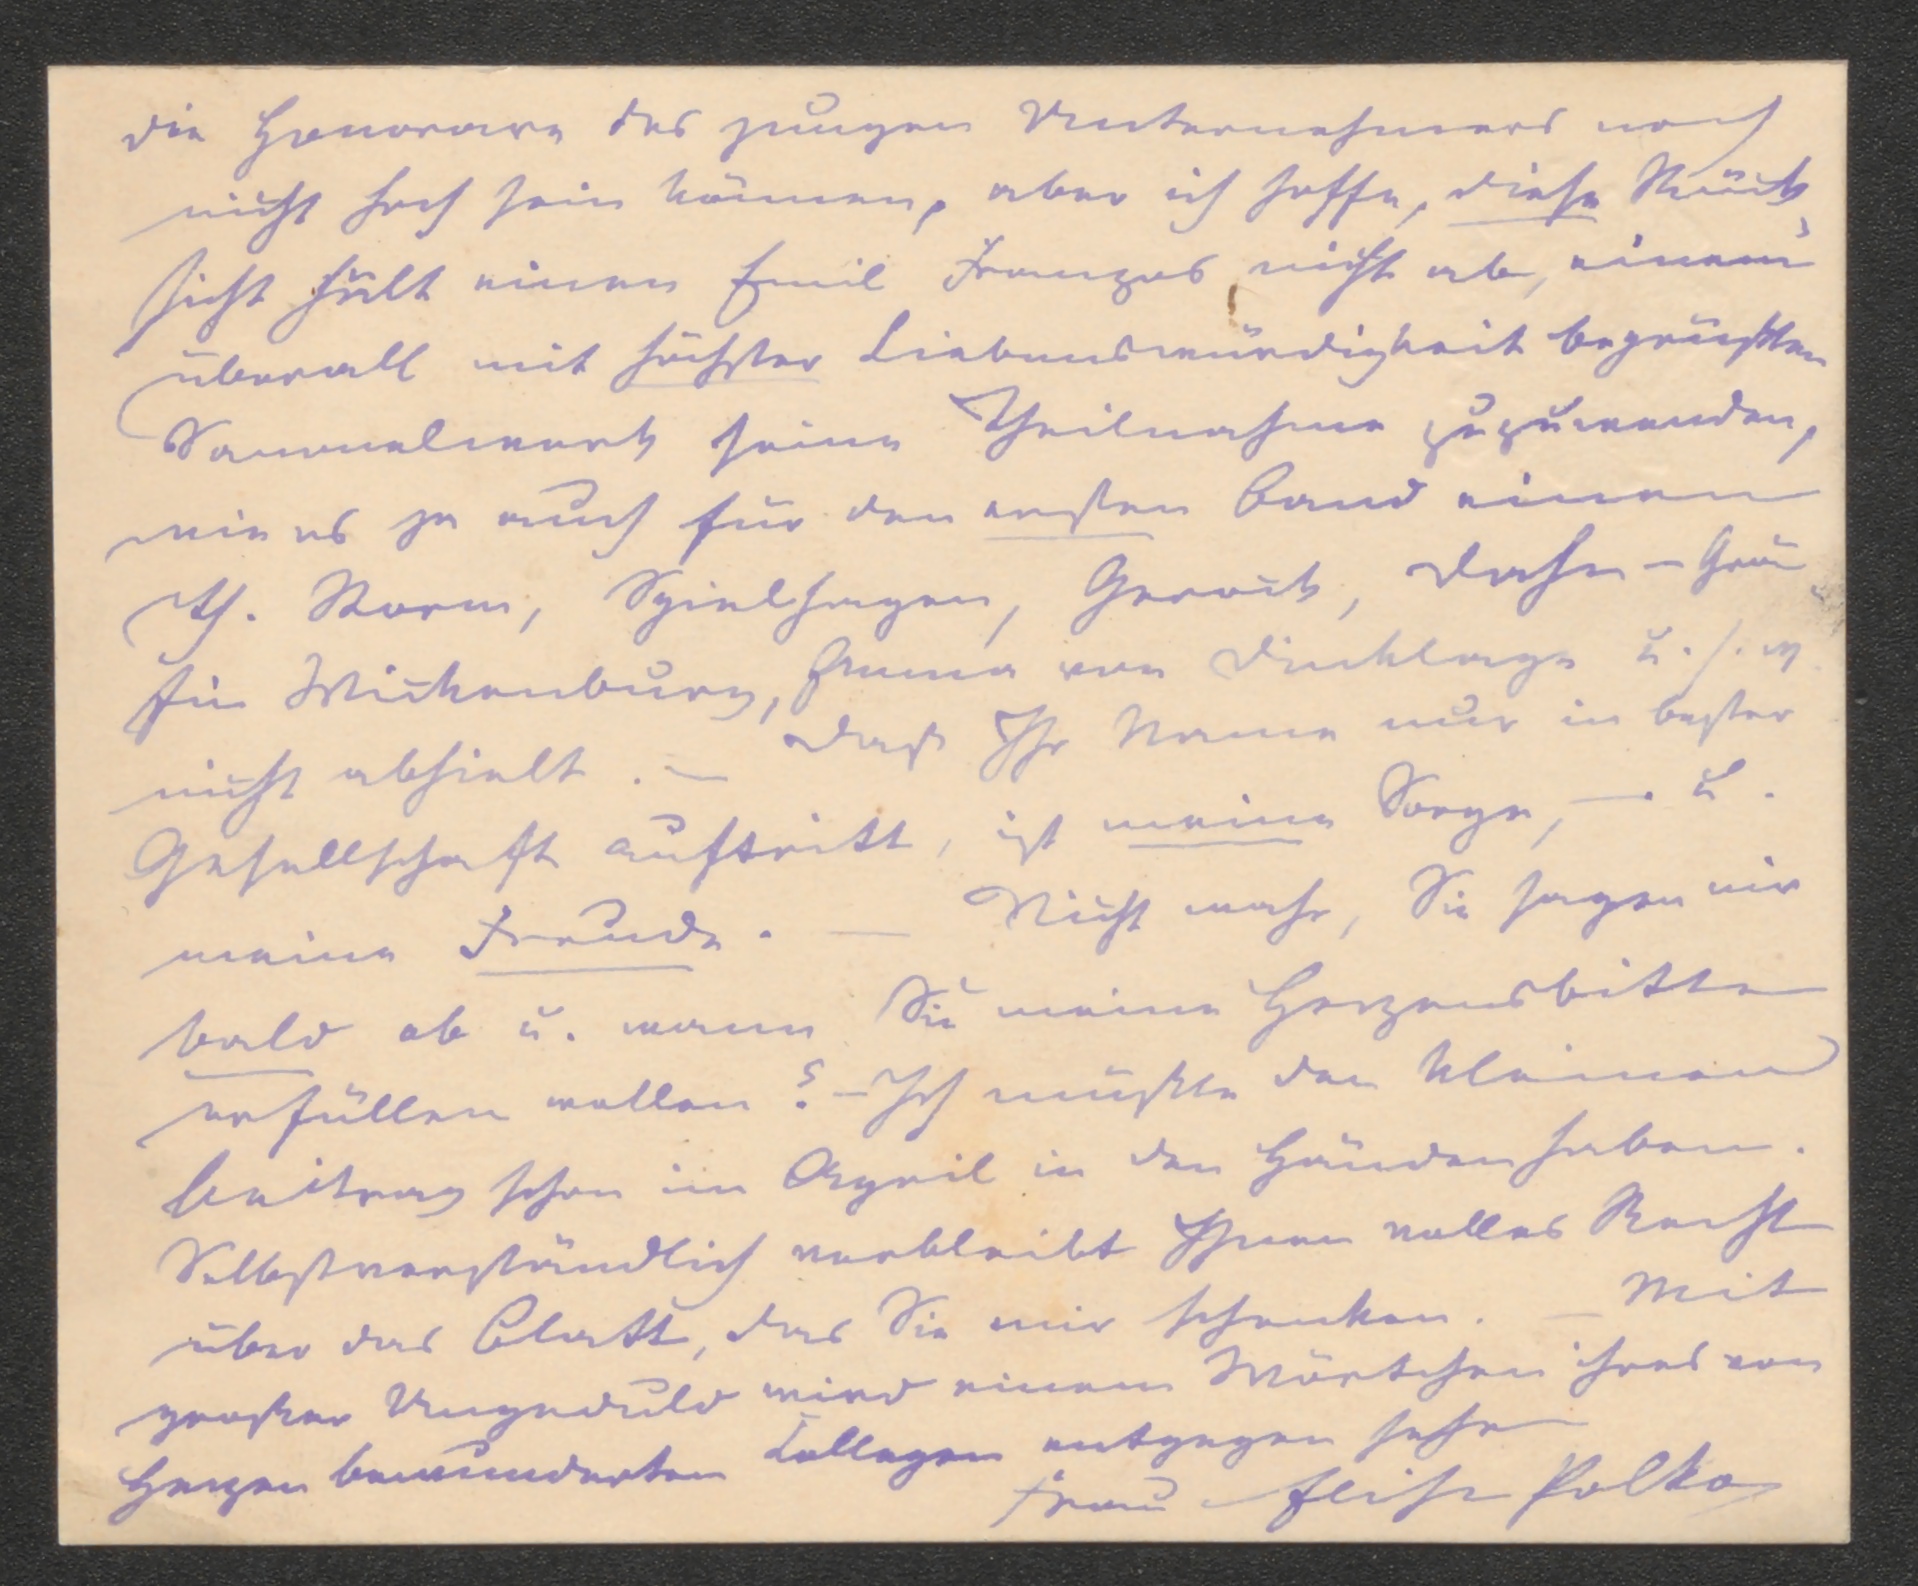 die Honorare des jungen Unternehmers noch
nicht hoch sein können, aber ich hoffe, diese Rück-
sicht hält einen Emil Franzos nicht ab, einem
überall mit höchster Liebenswürdigkeit begrüßten
Sammelwerk seine Theilnahme zuzuwenden,
wie es ja auch für den ersten Band einen
Th. Storm, Spielhagen, Gerock, Dahn - Grä
fin Wickenburg, Emma von Dincklage u. s. w
nicht abhielt. — Daß Ihr Name nur in bester
Gesellschaft auftritt, ist meine Sorge, — u.
meine Freude. — Nicht wahr, Sie sagen mir
bald ob u. wann Sie meine Herzensbitte
erfüllen wollen? — Ich müßte den kleinen
Beitrag schon im April in den Händen haben.
Selbstverständlich verbleibt Ihnen volles Recht
über das Blatt, das Sie mir schenken. — Mit
großer Ungeduld wird einem Wörtchen ihres von
Herzen bewunderten Collegen entgegen sehe
Frau Elise Polko